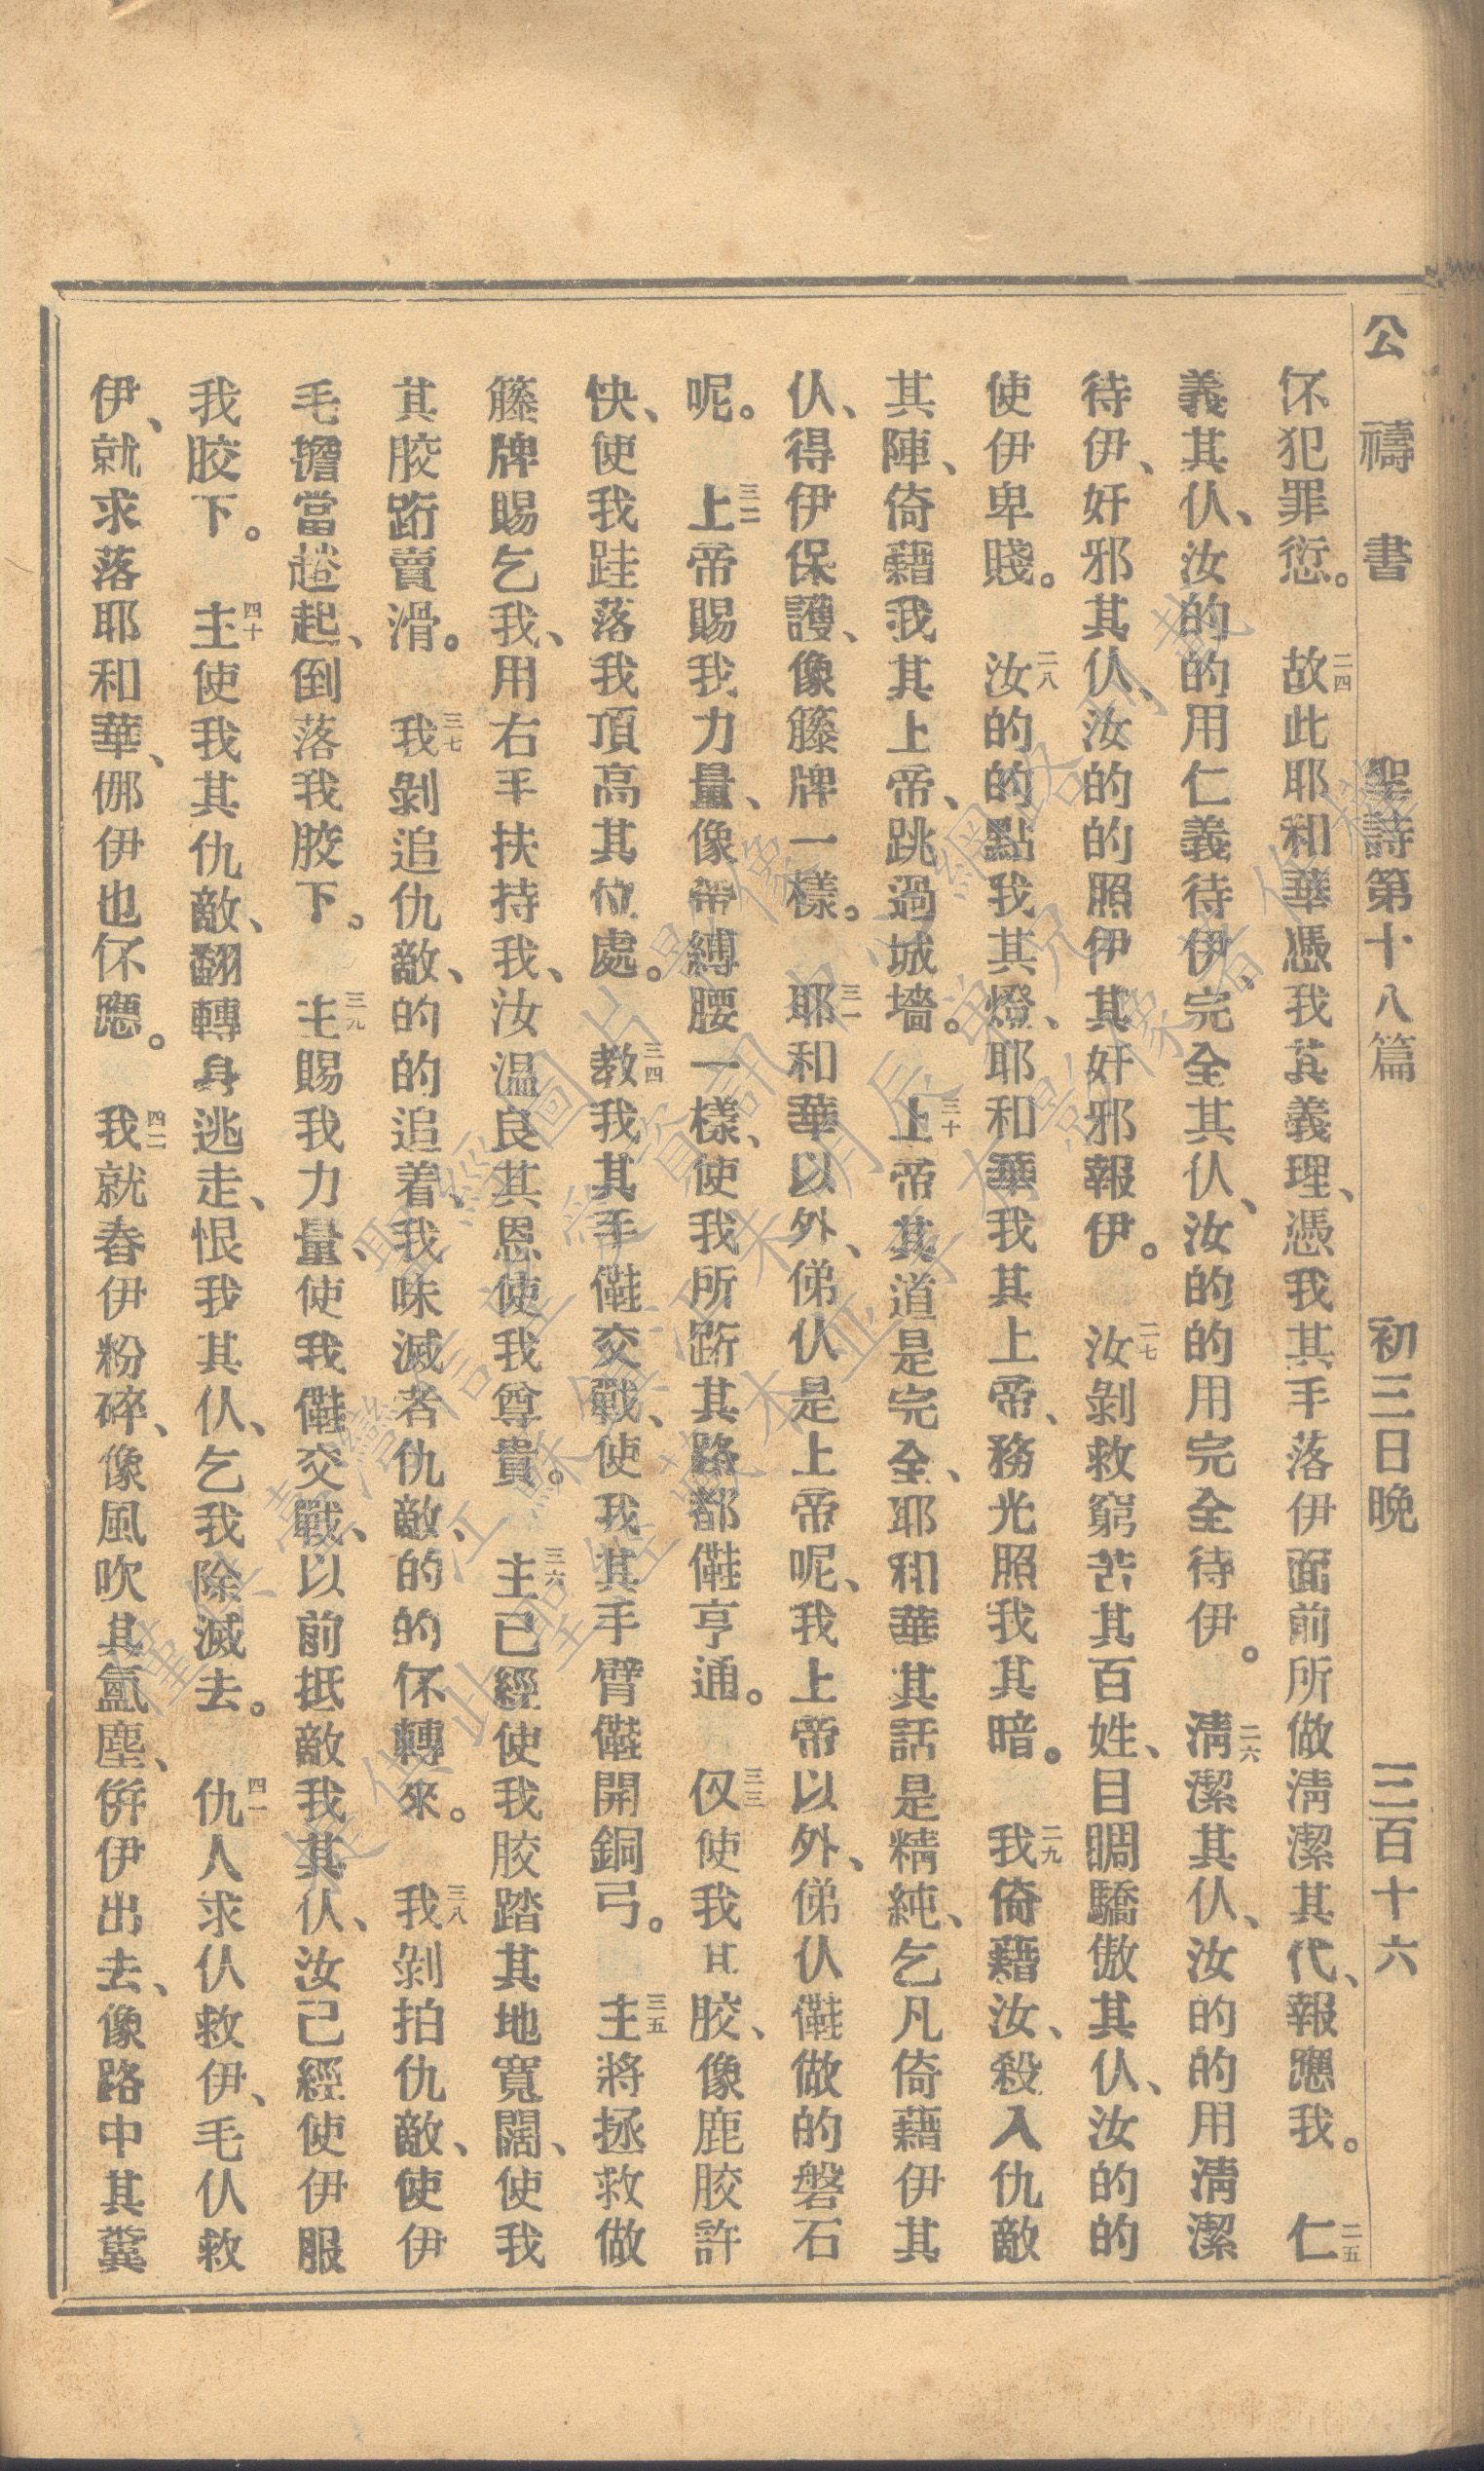 公禱書　聖詩第十八篇　初三日晚　三百十六
伓犯罪愆。二四故此耶和華憑我其義理、憑我其手落伊面前所做淸潔其代、報應我。二五仁
義其仈、汝的的用仁義待伊、完全其仈、汝的的用完全待伊。二六淸潔其仈、汝的的用淸潔
待伊、奸邪其仈、汝的的照伊其奸邪報伊。二七汝剝救窮苦其百姓、目睭驕傲其仈、汝的的
使伊卑賤。二八汝的的點我其燈、耶和華我其上帝、務光照我其暗。二九我倚藉汝、殺入仇敵
其陣、倚藉我其上帝、跳過城墻。三十上帝其道是完全、耶和華其話是精純、乞凡倚藉伊其
仈、得伊保護、像籐牌一樣。三一耶和華以外、俤仈是上帝呢、我上帝以外、俤仈儺做的磐石
呢。三二上帝賜我力量、像帶縛腰一樣、使我所跴其路都儺亨通。三三伩使我其胶、像鹿胶許
快、使我跬落我頂高其位處。三四敎我其手儺交戰、使我其手臂儺開銅弓。三五主將拯救做
籐牌賜乞我、用右手扶持我、汝温良其恩使我尊貴。三六主已經使我胶踏其地寬闊、使我
其胶跴賣滑。三七我剝追仇敵、的的追着、我味滅者仇敵、的的伓轉來。三八我剝拍仇敵、使伊
毛擔當趫起、倒落我胶下。三九主賜我力量、使我儺交戰、以前抵敵我其仈、汝已經使伊服
我胶下。四十主使我其仇敵、翻轉身逃走、恨我其仈、乞我除滅去。四一仇人求仈救伊、毛仈救
伊、就求落耶和華、倻伊也伓應。四二我就舂伊粉碎、像風吹其氳塵、倂伊出去、像路中其糞